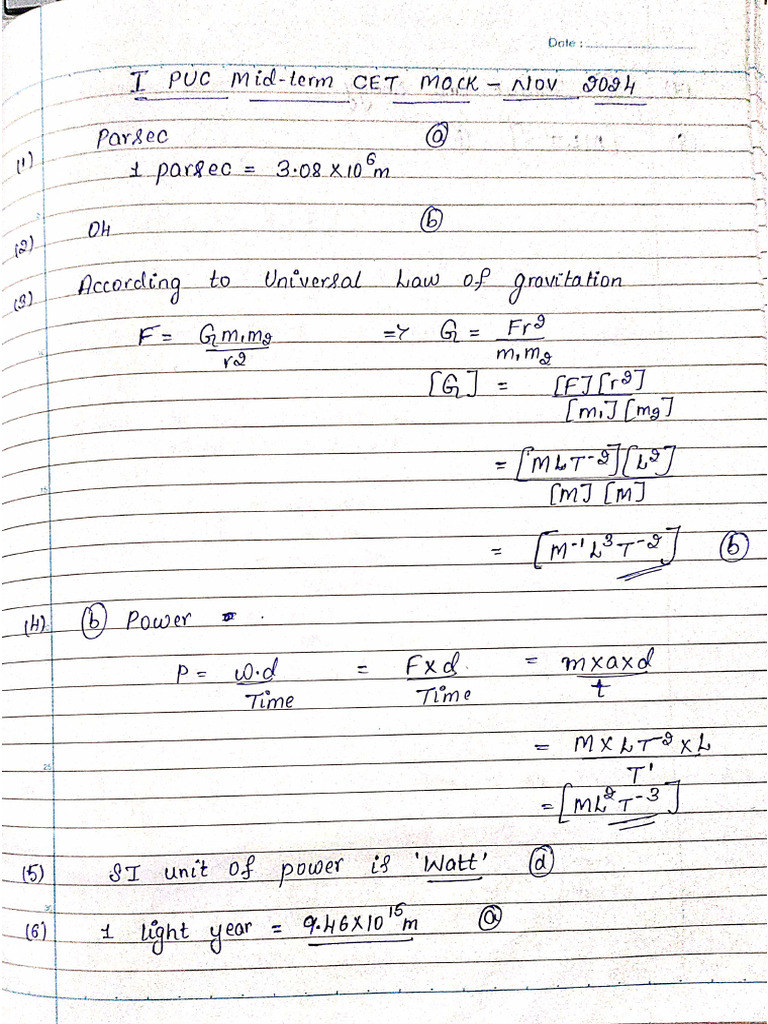 Date :
I PUC Mid-term CET MOCK - NOV 2024
(1) Parsec (a)
1 parsec = 3.08 × 10⁶ m
(2) 04 (b)
(3) According to Universal Law of gravitation
F = G m₁m₂ / r² => G = Fr² / m₁m₂
[G] = [F][r²] / [m₁][m₂]
= [MLT⁻²][L²] / [M] [M]
= [M⁻¹L³T⁻²] (b)
(4) (b) Power =
P = w.d / Time = F×d / Time = m×a×d / t
= M × LT⁻² × L / T¹
= [ML²T⁻³]
(5) SI unit of power is 'Watt' (d)
(6) 1 light year = 9.46×10¹⁵ m (a)